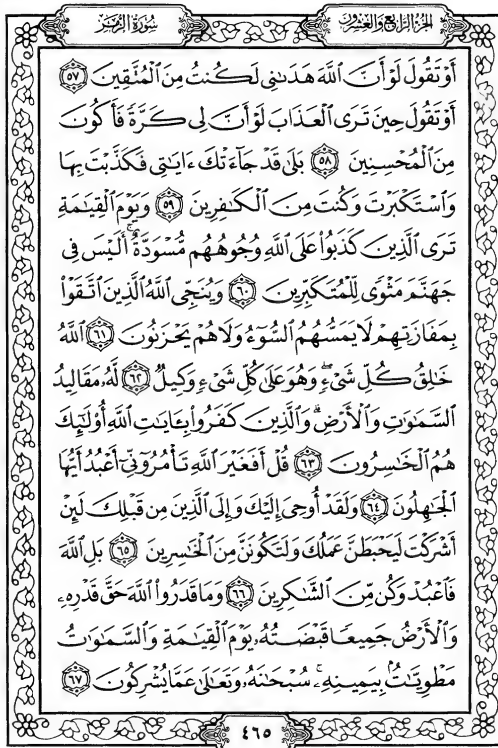 سُورَةُ الزُّمَرِ
الجُزْءُ الرَّابِعُ وَالعِشْرُونَ
أَوْ تَقُولَ لَوْ أَنَّ ٱللَّهَ هَدَىٰنِى لَكُنتُ مِنَ ٱلْمُتَّقِينَ ٥٧
أَوْ تَقُولَ حِينَ تَرَى ٱلْعَذَابَ لَوْ أَنَّ لِى كَرَّةً فَأَكُونَ
مِنَ ٱلْمُحْسِنِينَ ٥٨ بَلَىٰ قَدْ جَآءَتْكَ ءَايَٰتِى فَكَذَّبْتَ بِهَا
وَٱسْتَكْبَرْتَ وَكُنتَ مِنَ ٱلْكَٰفِرِينَ ٥٩ وَيَوْمَ ٱلْقِيَٰمَةِ
تَرَى ٱلَّذِينَ كَذَبُوا۟ عَلَى ٱللَّهِ وُجُوهُهُم مُّسْوَدَّةٌ ۚ أَلَيْسَ فِى
جَهَنَّمَ مَثْوًى لِّلْمُتَكَبِّرِينَ ٦٠ وَيُنَجِّى ٱللَّهُ ٱلَّذِينَ ٱتَّقَوْا۟
بِمَفَازَتِهِمْ لَا يَمَسُّهُمُ ٱلسُّوٓءُ وَلَا هُمْ يَحْزَنُونَ ٦١ ٱللَّهُ
خَٰلِقُ كُلِّ شَىْءٍ ۖ وَهُوَ عَلَىٰ كُلِّ شَىْءٍ وَكِيلٌ ٦٢ لَّهُۥ مَقَالِيدُ
ٱلسَّمَٰوَٰتِ وَٱلْأَرْضِ ۗ وَٱلَّذِينَ كَفَرُوا۟ بِـَٔايَٰتِ ٱللَّهِ أُو۟لَٰٓئِكَ
هُمُ ٱلْخَٰسِرُونَ ٦٣ قُلْ أَفَغَيْرَ ٱللَّهِ تَأْمُرُوٓنِّىٓ أَعْبُدُ أَيُّهَا
ٱلْجَٰهِلُونَ ٦٤ وَلَقَدْ أُوحِىَ إِلَيْكَ وَإِلَى ٱلَّذِينَ مِن قَبْلِكَ لَئِنْ
أَشْرَكْتَ لَيَحْبَطَنَّ عَمَلُكَ وَلَتَكُونَنَّ مِنَ ٱلْخَٰسِرِينَ ٦٥ بَلِ ٱللَّهَ
فَٱعْبُدْ وَكُن مِّنَ ٱلشَّٰكِرِينَ ٦٦ وَمَا قَدَرُوا۟ ٱللَّهَ حَقَّ قَدْرِهِۦ
وَٱلْأَرْضُ جَمِيعًا قَبْضَتُهُۥ يَوْمَ ٱلْقِيَٰمَةِ وَٱلسَّمَٰوَٰتُ
مَطْوِيَّٰتٌۢ بِيَمِينِهِۦ ۚ سُبْحَٰنَهُۥ وَتَعَٰلَىٰ عَمَّا يُشْرِكُونَ ٦٧
٤٦٥